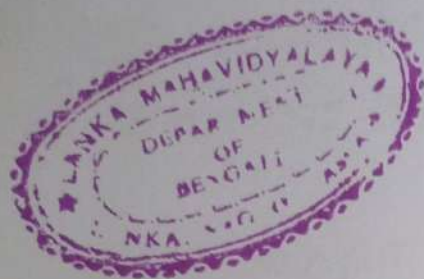 LANKA MAHAVIDYALAYA
DEPARTMENT
OF
BENGALI
LANKA, ASSAM